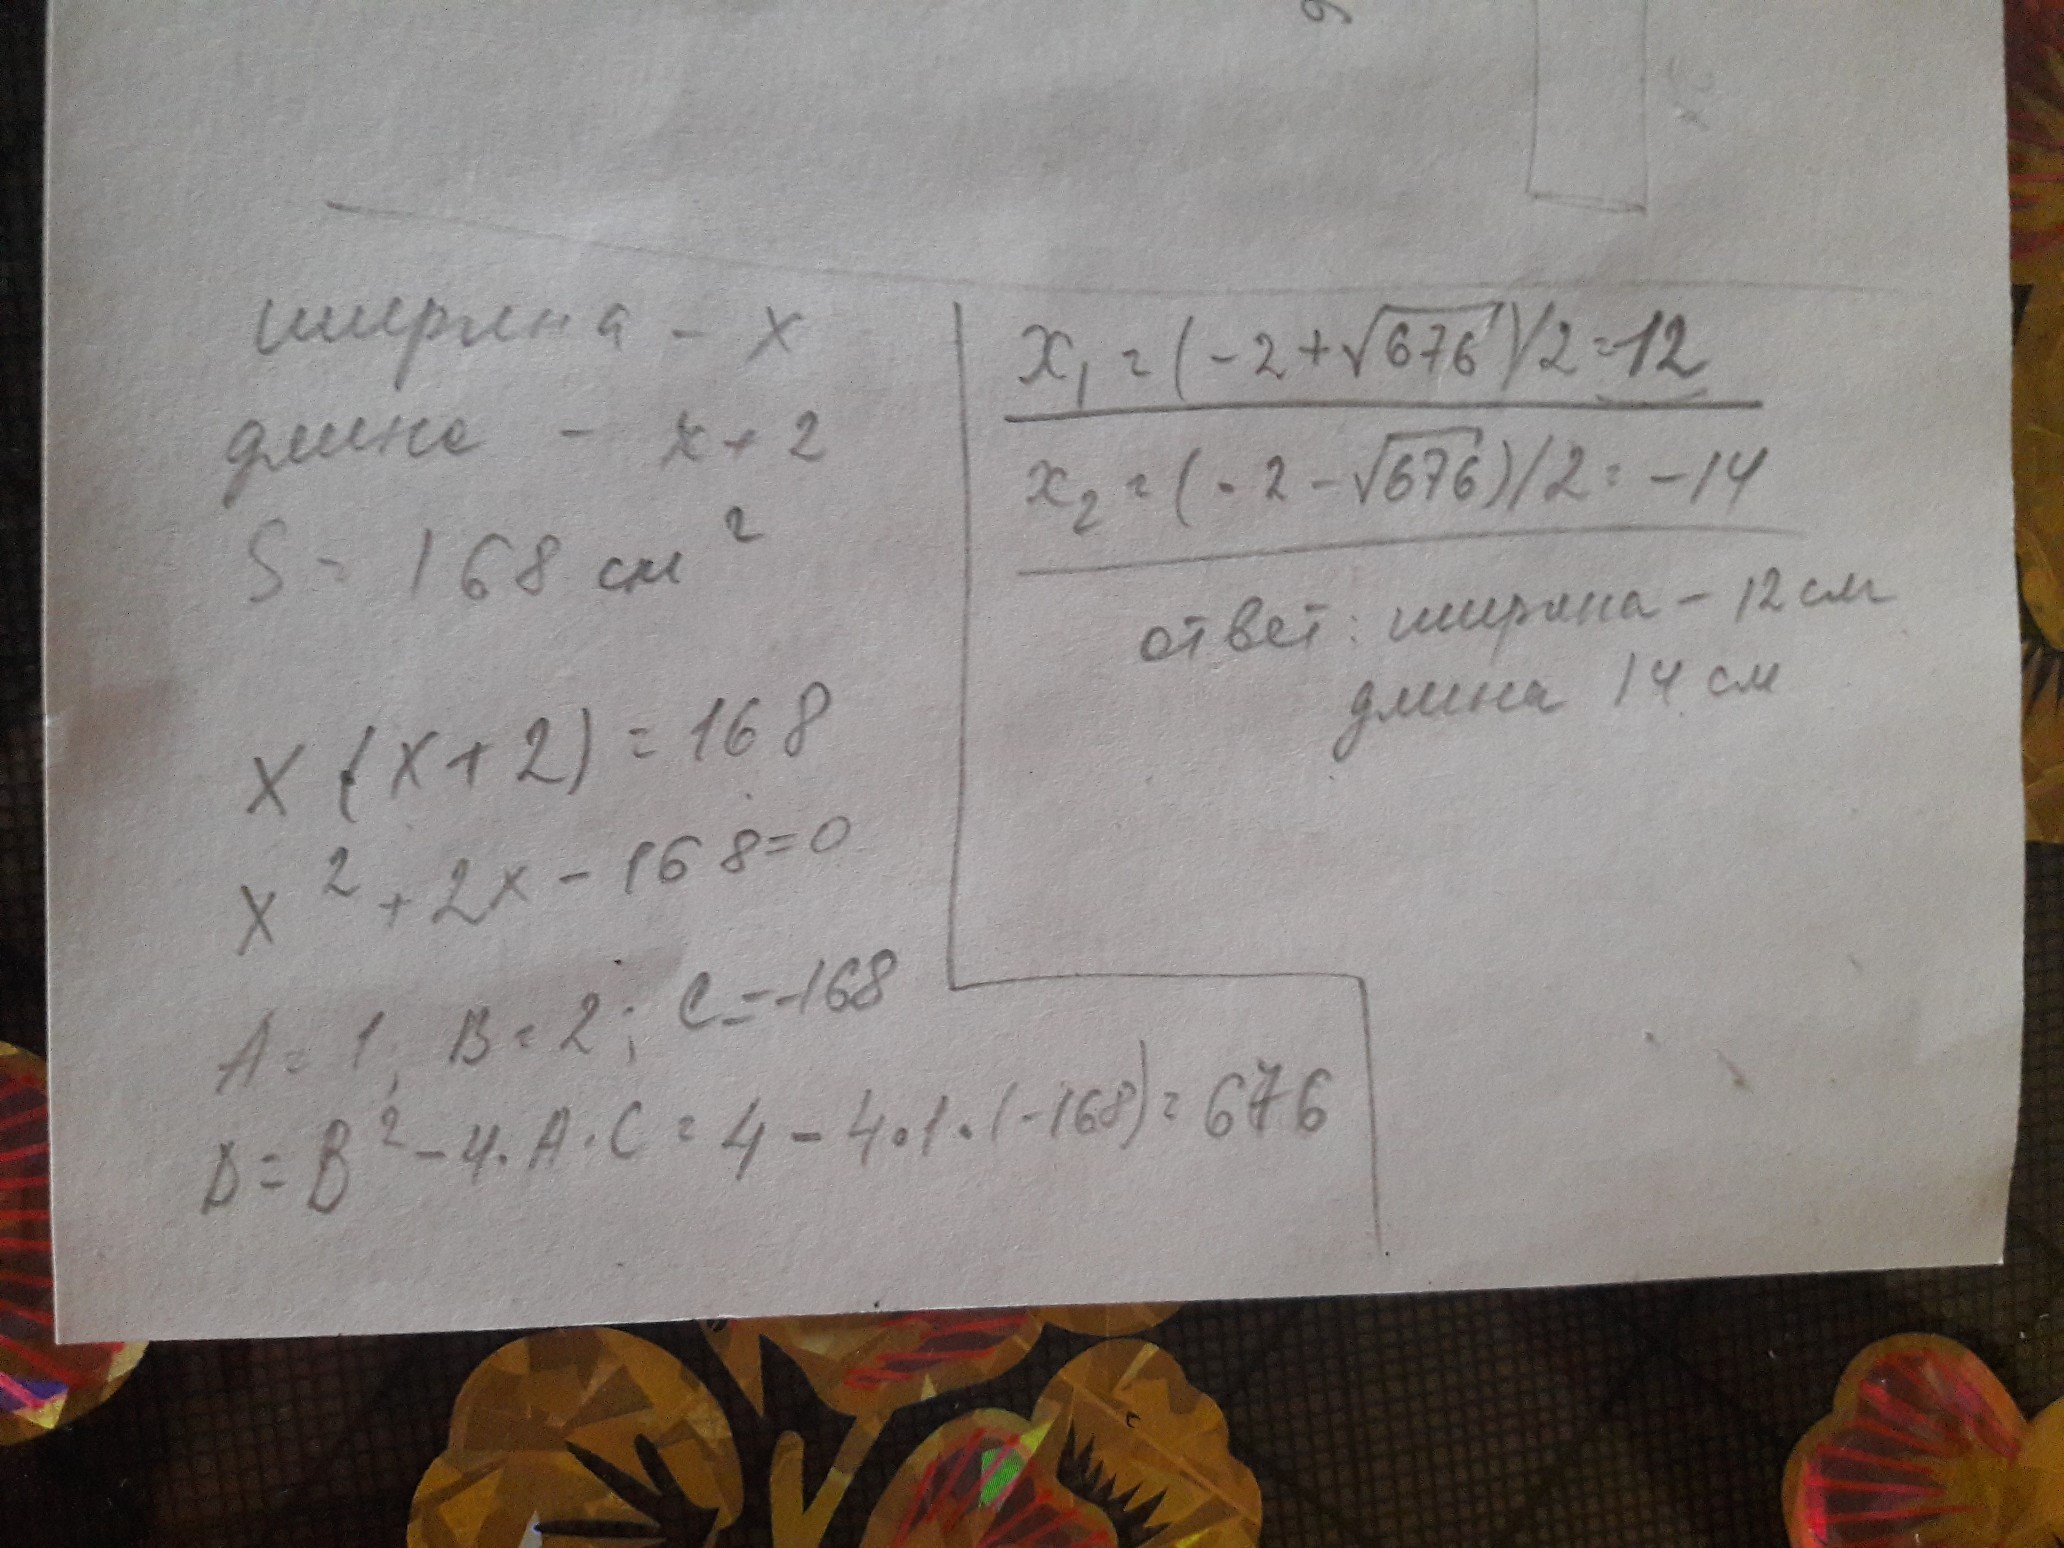 6
ширина - x
длина - x+2
S = 168 см²
x·(x+2) = 168
x² + 2x - 168 = 0
A = 1; B = 2; C = -168
D = B² - 4·A·C = 4 - 4·1·(-168) = 676
x₁ = (-2+√676)/2 = 12
x₂ = (-2-√676)/2 = -14
ответ: ширина - 12 см
длина 14 см